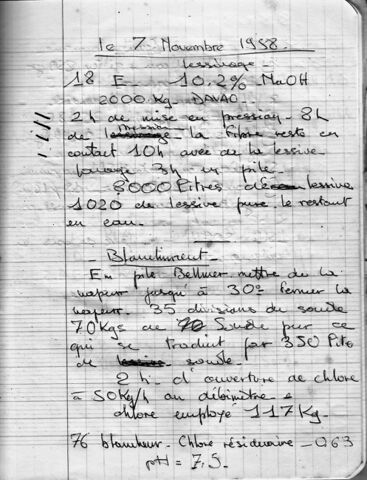 le 7 Novembre 1958.
Lessivage -
18 E - 10.2% NaOH
2000 Kg DAVAO.
2h de mise en pression - 8h
de pression la fibre reste en
contact 10h avec de la lessive
lavage 3h en pile.
8000 litres de lessive
1020 de lessive pure le restant
en eau.
- Blanchiment -
En pile Bellmer mettre de la
vapeur jusqu'à 30° fermer la
vapeur. 35 divisions de soude
70Kgs de Soude pur ce
qui se traduit par 350 lits
de soude.
2 h d'ouverture de chlore
à 50Kg/h au débimètre =
chlore employé 117Kg.
76 blancheur - Chlore résiduaire - 0.63
pH = 7,5.